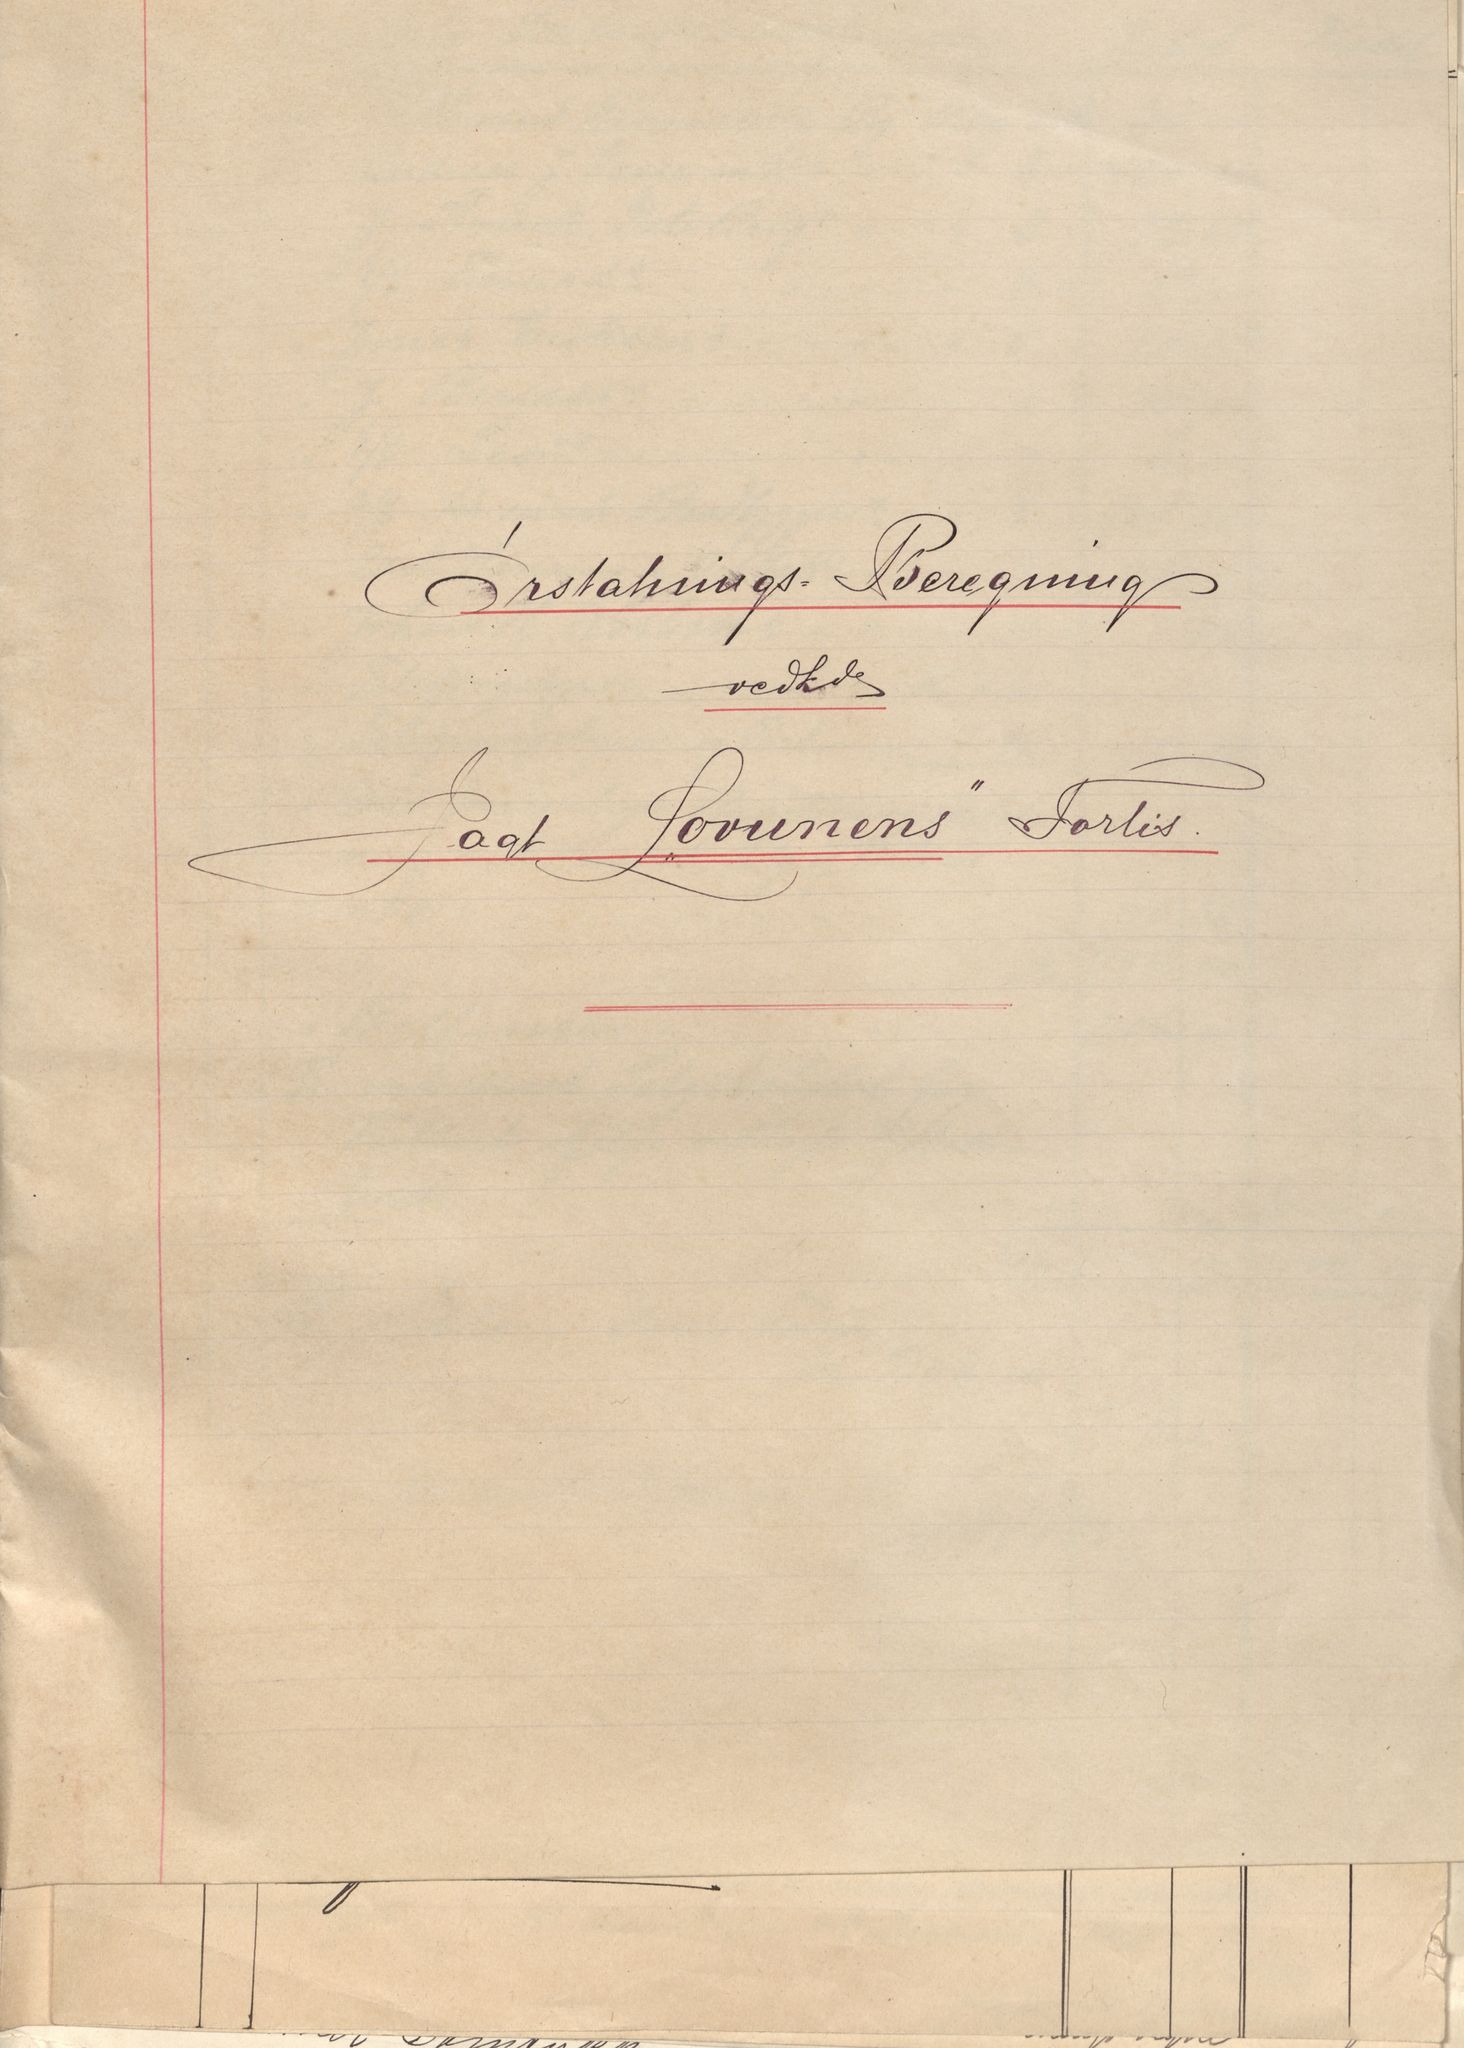 Erstatnings-Beregning
vedkde
Jagt „Lovunens" Forlis.